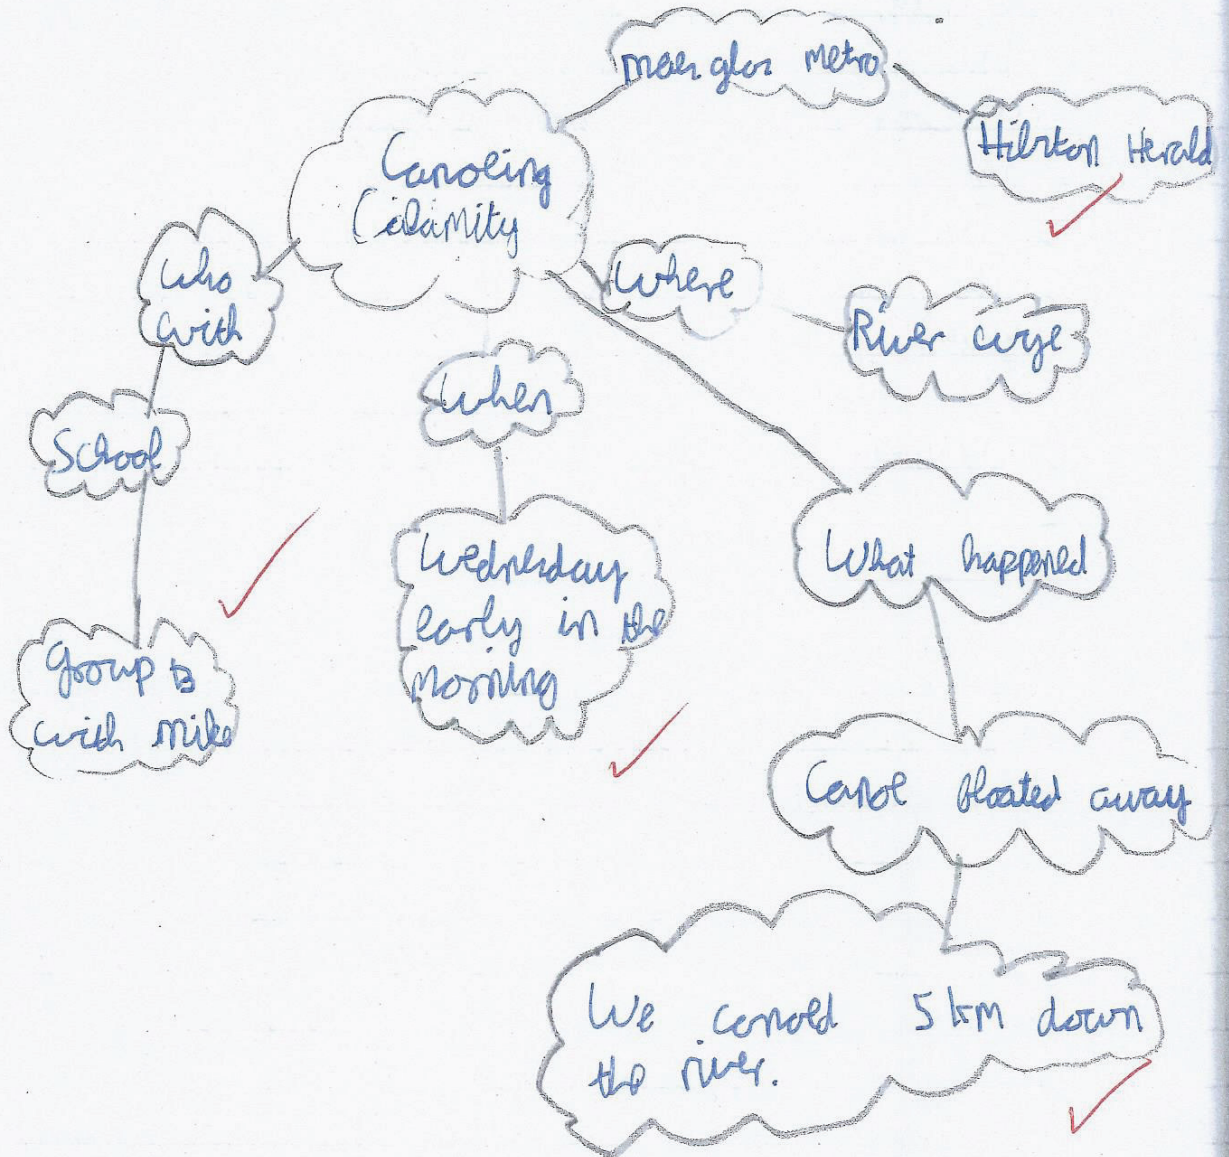 Metro
Hilston Herald
Canoeing
Calamity
Who
with
Where
River wye
When
School
What happened
Wednesday
early in the
morning
group B
with Mike
Canoe floated away
We canoed 5 km down
the river.